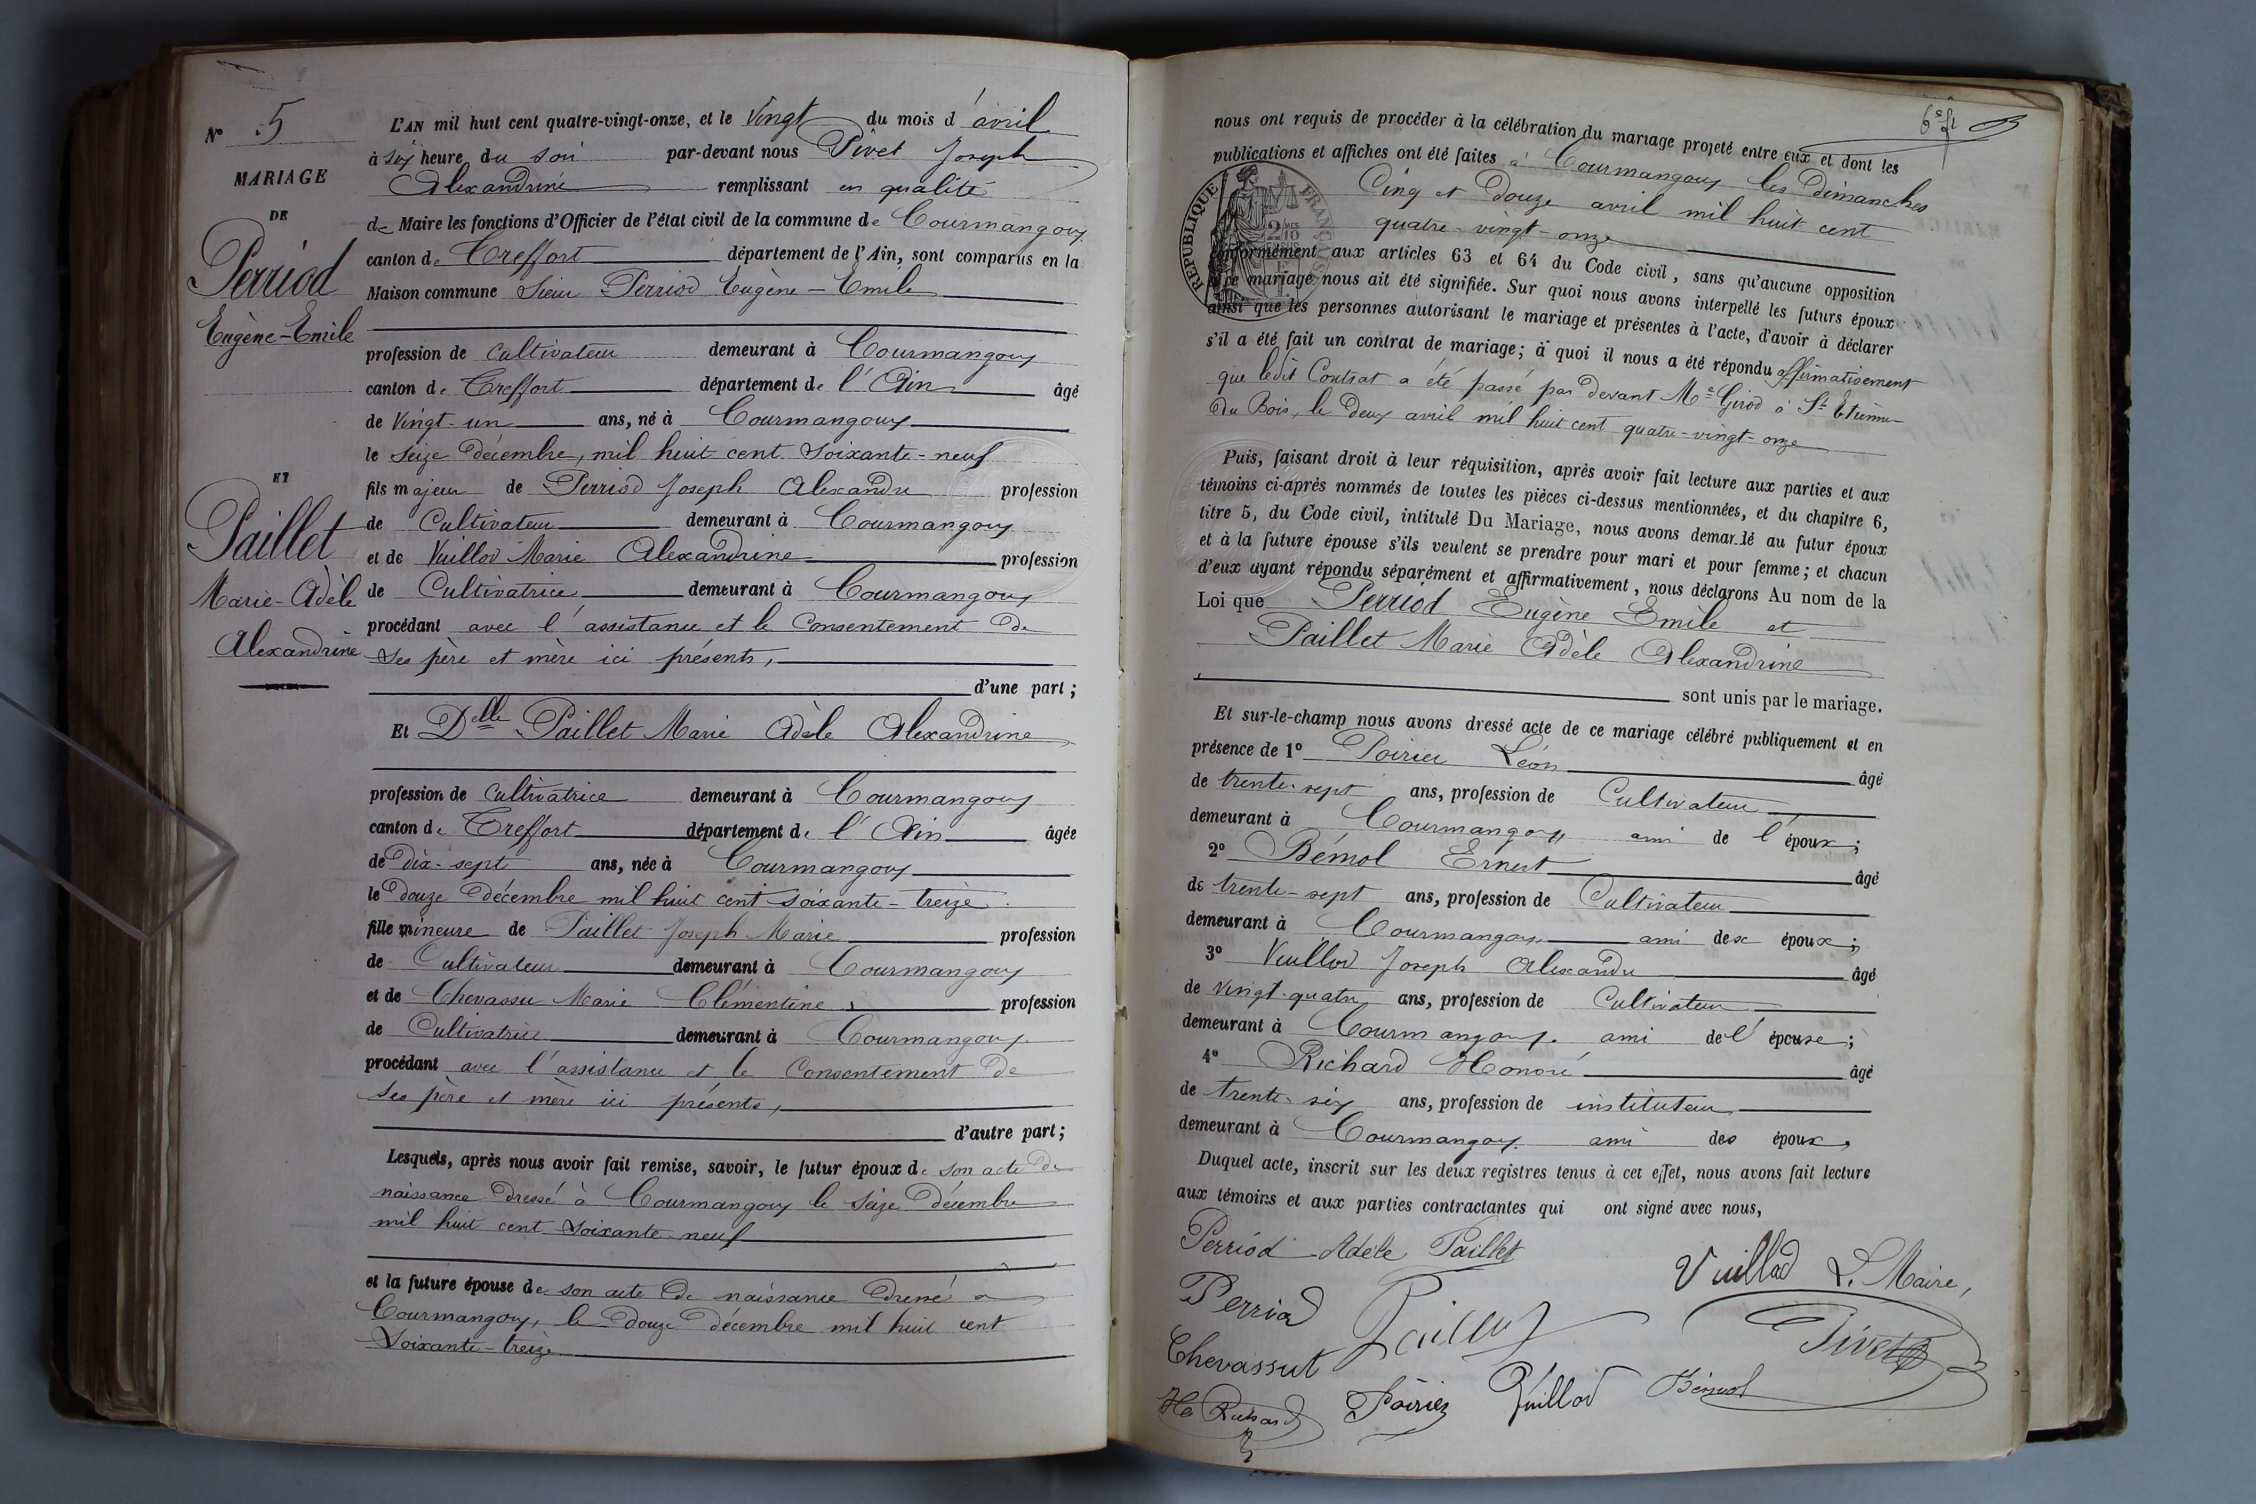 N° 5
MARIAGE
DE
Perriod
Eugène-Emile
ET
Paillet
Marie-Adèle
Alexandrine
L'AN mil huit cent quatre-vingt-onze, et le Vingt du mois d'avril
à six heure du soir par-devant nous Pivet Joseph
Alexandrine remplissant en qualité
de Maire les fonctions d'Officier de l'état civil de la commune de Courmangoux
canton de Treffort département de l'Ain, sont comparus en la
Maison commune Sieur Perriod Eugène-Emile
profession de cultivateur demeurant à Courmangoux
canton de Treffort département de l'Ain âgé
de Vingt-un ans, né à Courmangoux
le seize décembre, mil huit cent soixante-neuf
fils majeur de Perriod Joseph Alexandre profession
de Cultivateur demeurant à Courmangoux
et de Vuillod Marie Alexandrine profession
de Cultivatrice demeurant à Courmangoux
procédant avec l'assistance et le Consentement de
ses père et mère ici présents,
d'une part;
Et Delle Paillet Marie Adèle Alexandrine
profession de Cultivatrice demeurant à Courmangoux
canton de Treffort département de l'Ain âgée
de Dix-sept ans, née à Courmangoux
le Douze Décembre mil huit cent soixante-treize
fille mineure de Paillet Joseph Marie profession
de Cultivateur demeurant à Courmangoux
et de Chevassu Marie Clémentine, profession
de Cultivatrice demeurant à Courmangoux
procédant avec l'assistance et le Consentement de
ses père et mère ici présents,
d'autre part;
Lesquels, après nous avoir fait remise, savoir, le futur époux de son acte de
naissance Dressé à Courmangoux le seize Décembre
mil huit cent soixante-neuf
et la future épouse de son acte de naissance Dressé à
Courmangoux, le Douze décembre mil huit cent
Soixante-treize
nous ont requis de procéder à la célébration du mariage projeté entre eux et dont les
publications et affiches ont été faites à Courmangoux les Dimanches
Cinq et Douze avril mil huit cent
quatre-vingt-onze
conformément aux articles 63 et 64 du Code civil, sans qu'aucune opposition
à ce mariage nous ait été signifiée. Sur quoi nous avons interpellé les futurs époux
ainsi que les personnes autorisant le mariage et présentes à l'acte, d'avoir à déclarer
s'il a été fait un contrat de mariage; à quoi il nous a été répondu affirmativement
que ledit Contrat a été passé par devant Me Girod à St Etienne
du Bois, le Deux avril mil huit cent quatre-vingt-onze
Puis, faisant droit à leur réquisition, après avoir fait lecture aux parties et aux
témoins ci-après nommés de toutes les pièces ci-dessus mentionnées, et du chapitre 6,
titre 5, du Code civil, intitulé Du Mariage, nous avons demandé au futur époux
et à la future épouse s'ils veulent se prendre pour mari et pour femme; et chacun
d'eux ayant répondu séparément et affirmativement, nous déclarons Au nom de la
Loi que Perriod Eugène Emile et
Paillet Marie Adèle Alexandrine
sont unis par le mariage.
Et sur-le-champ nous avons dressé acte de ce mariage célébré publiquement et en
présence de 1° Poirier Léon âgé
de trente-sept ans, profession de Cultivateur
demeurant à Courmangoux ami de l'époux;
2° Bémol Ernest âgé
de trente-sept ans, profession de Cultivateur
demeurant à Courmangoux ami des époux;
3° Vuillod Joseph Alexandre âgé
de vingt-quatre ans, profession de Cultivateur
demeurant à Courmangoux ami de l'épouse;
4° Richard Honoré âgé
de trente-six ans, profession de instituteur
demeurant à Courmangoux ami des époux,
Duquel acte, inscrit sur les deux registres tenus à cet effet, nous avons fait lecture
aux témoins et aux parties contractantes qui ont signé avec nous,
Perriod Adèle Paillet Vuillod L. Maire,
Perriod Paillet Pivet
Chevassut
He Richard Poirier Vuillod Bémol
REPUBLIQUE FRANÇAISE